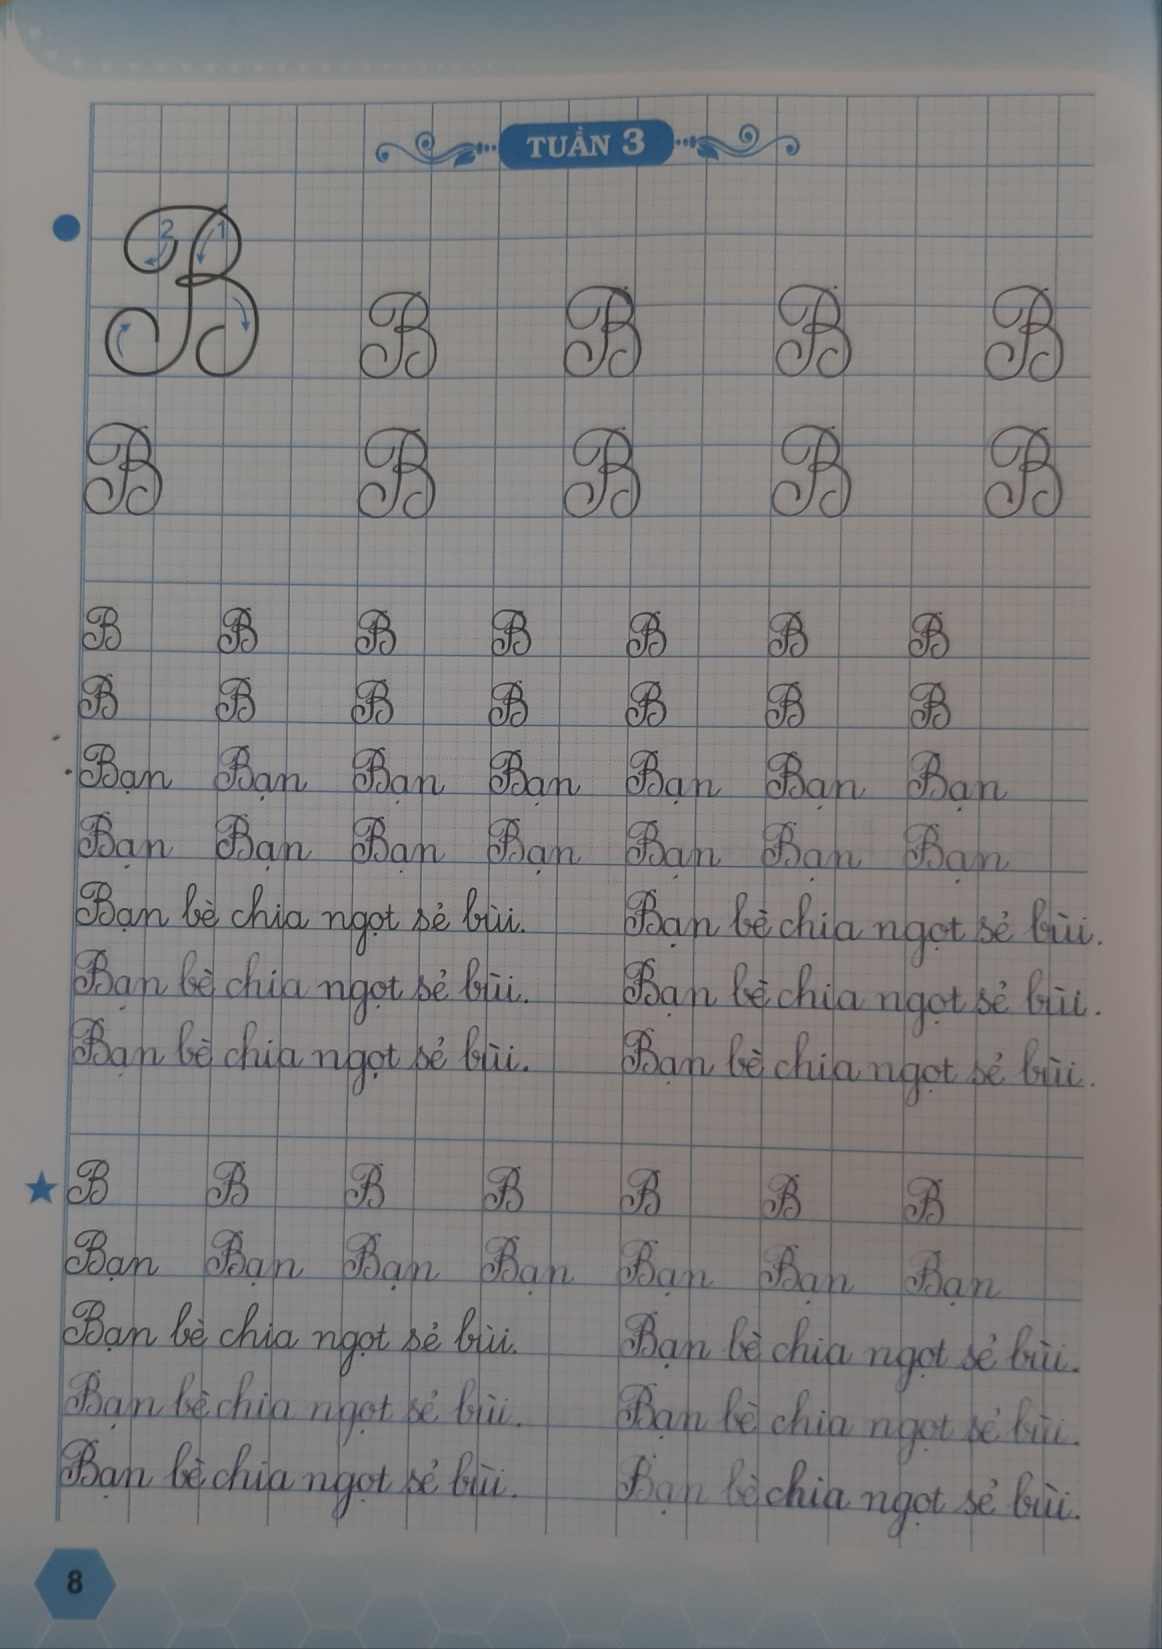 TUẦN 3
2 1
B B B B B
B B B B B
B B B B B B B
B B B B B B B
Bạn Bạn Bạn Bạn Bạn Bạn Bạn
Bạn Bạn Bạn Bạn Bạn Bạn Bạn
Bạn bè chia ngọt sẻ bùi. Bạn bè chia ngọt sẻ bùi.
Bạn bè chia ngọt sẻ bùi. Bạn bè chia ngọt sẻ bùi.
Bạn bè chia ngọt sẻ bùi. Bạn bè chia ngọt sẻ bùi.
B B B B B B B
Bạn Bạn Bạn Bạn Bạn Bạn Bạn
Bạn bè chia ngọt sẻ bùi. Bạn bè chia ngọt sẻ bùi.
Bạn bè chia ngọt sẻ bùi. Bạn bè chia ngọt sẻ bùi.
Bạn bè chia ngọt sẻ bùi. Bạn bè chia ngọt sẻ bùi.
8